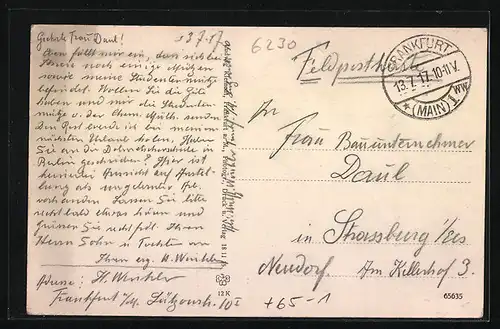 Geehrte Frau Daul! 13.7.17
Eben fällt mir ein, dass sich bei
Ihnen noch einige Mützen
sowie meine Studentenmütze
befindet. Wollen Sie die Güte
haben und mir die Studenten-
mütze u. der Mütze senden.
Den Rest werde ich bei meinem
nächsten Urlaub holen. Haben
Sie an die in
Berlin geschrieben? Hier ist
keinerlei Aussicht auf Anstel-
lung als
vorhanden. Lassen Sie bitte
recht bald etwas hören und
grüssen Sie Ihren
Herrn Sohn u. Tochter von
Ihrem erg. H. Winkler
Adresse: H. Winkler
Frankfurt Lützowstr. 10 I
6230
Feldpostkarte
FRANKFURT
13.7.17.10-11V.
(MAIN) 1
WW
An
Frau Bauunternehmer
Daul
in Strassburg i/Els
Neudorf. Am Kellerhof 3.
+65-1
12 K
65635